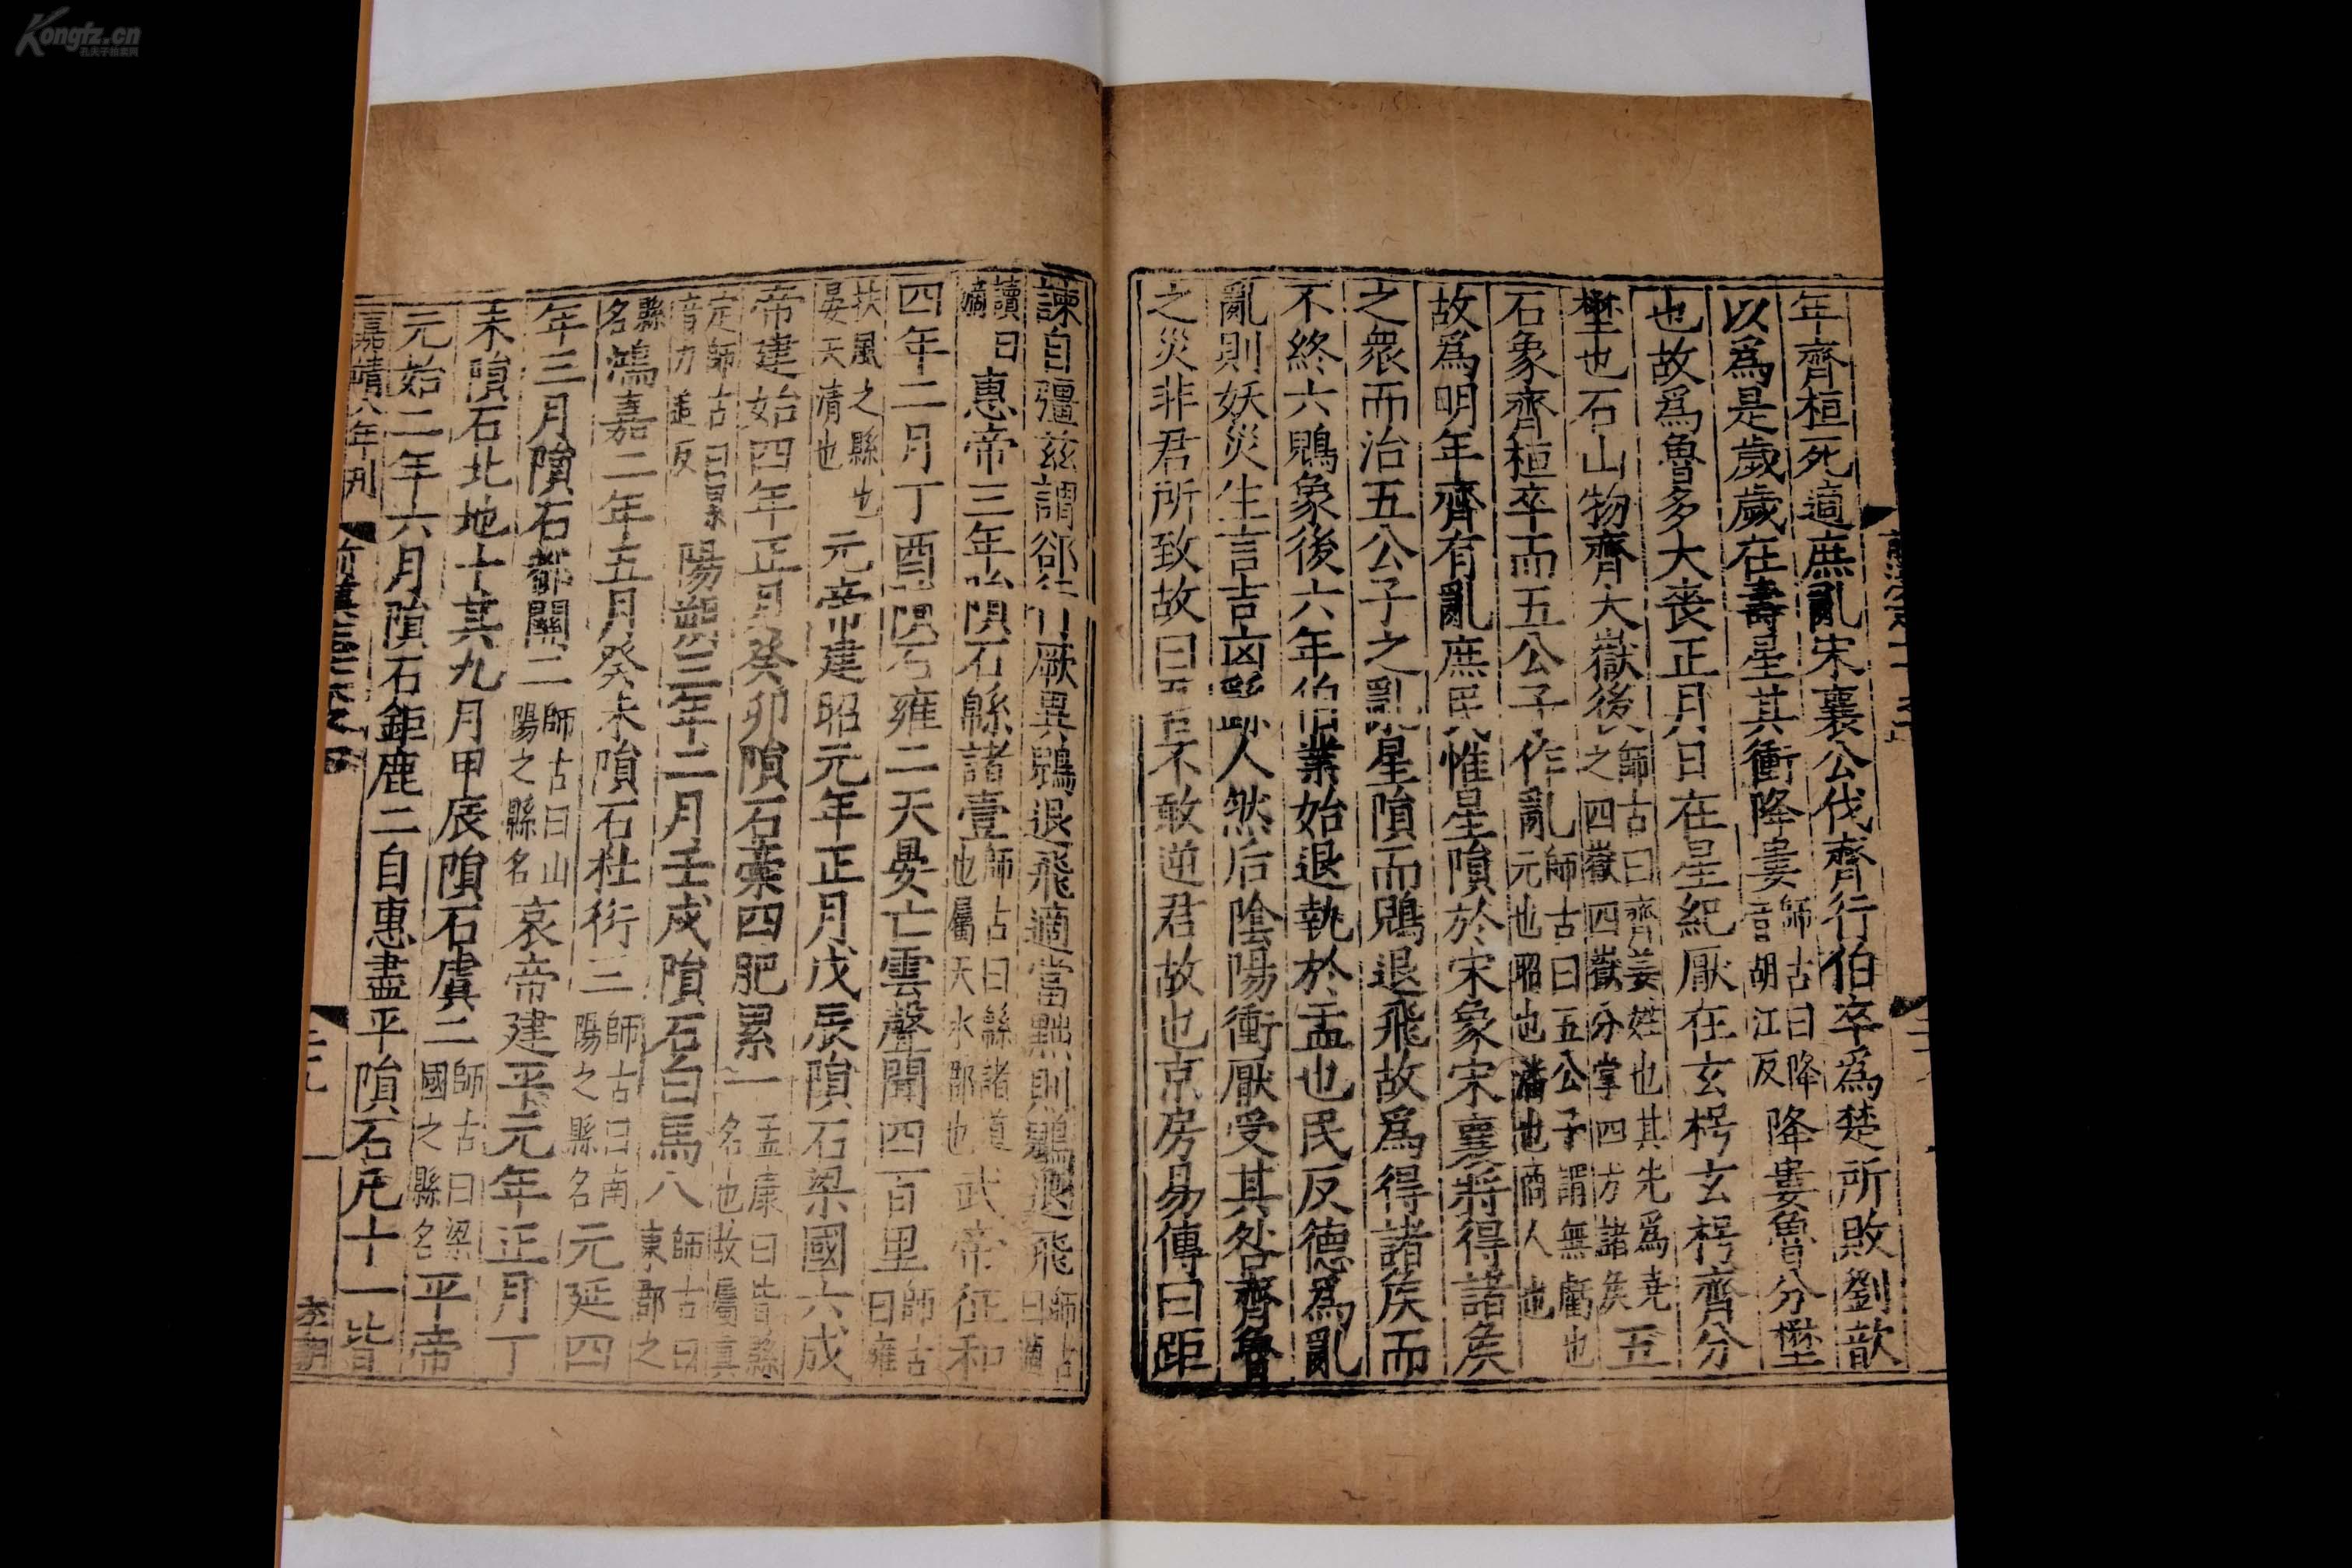 年齊桓死適庶亂宋襄公伐齊行伯卒爲楚所敗劉歆
以爲是歲歲在壽星其衝降婁師古曰降婁音胡江反降婁魯分壄
也故爲魯多大喪正月日在星紀厭在玄枵玄枵齊分
壄也石山物齊大嶽後師古曰齊姜姓也其先爲堯之四嶽四嶽分掌四方諸侯五
石象齊桓卒而五公子作亂師古曰五公子謂無虧也元也昭也潘也商人也
故爲明年齊有亂庶民惟星隕於宋象宋襄將得諸侯
之衆而治五公子之亂星隕而鶂退飛故爲得諸侯而
不終六鶂象後六年伯業始退執於盂也民反德爲亂
亂則妖災生言吉凶繇人然后陰陽衝厭受其咎齊魯
之災非君所致故曰吾不敢逆君故也京房易傳曰距
諫自彊茲謂卻行厥異鶂退飛適當黜則鶂退飛師古曰適
讀曰嫡惠帝三年隕石緜諸壹師古曰緜諸道也屬天水郡也武帝征和
四年二月丁酉隕石雍二天晏亡雲聲聞四百里師古曰雍
扶風之縣也晏天清也元帝建昭元年正月戊辰隕石梁國六成
帝建始四年正月癸卯隕石槀四肥累一孟康曰皆縣名也故屬真
定師古曰累音力追反陽朔三年二月壬戌隕石白馬八師古曰東郡之
縣名鴻嘉二年五月癸未隕石杜衍三師古曰南陽之縣名元延四
年三月隕石都關二師古曰山陽之縣名哀帝建平元年正月丁
未隕石北地十其九月甲辰隕石虞二師古曰梁國之縣名平帝
元始二年六月隕石鉅鹿二自惠盡平隕石凡十一皆
嘉靖八年刊
前漢志七下之
Kongfz.cn
孔夫子拍卖网